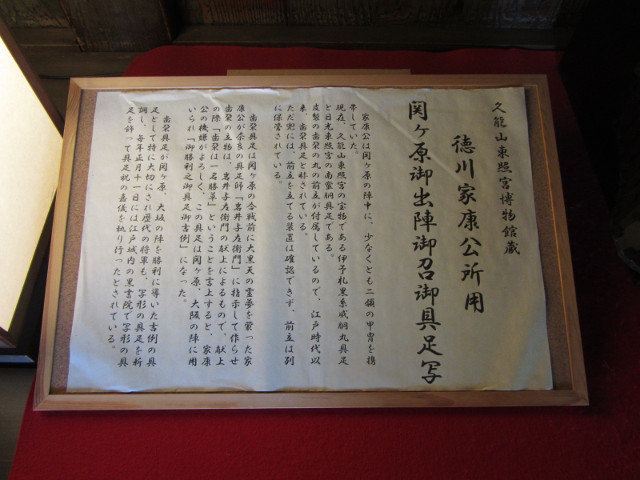 久能山東照宮博物館蔵
徳川家康公所用
関ヶ原御出陣御召御具足写
家康公は関ヶ原の陣中に、少なくとも二領の甲冑を携
帯していた。
現在、久能山東照宮の宝物である伊予札黒糸威胴丸具足
と日光東照宮の南蛮胴具足である。
皮製の歯朶の丸の前立が付属しているので、江戸時代以
来、歯朶具足と称されている。
ただ兜には、前立を立てる装置は確認できず、前立は別
に保管されている。
歯朶具足は関ヶ原の合戦前に大黒天の霊夢を蒙った家
康公が奈良の具足師「岩井与左衛門」に指示して作らせ
歯朶の立物は、岩井与左衛門の献上によるもので、献上
の際「歯朶は一名勝草」ということを言上すると、家康
公の機嫌がよろしく、この具足は関ヶ原、大阪の陣に用
いられ「御勝利之御具足御吉例」になった。
歯朶具足が関ヶ原、大坂の陣を勝利に導いた吉例の具
足として特に大切にされ歴代の将軍も、写形の具足を新
調し、毎年正月十一日には江戸城内の黒書院で写形の具
足を飾って具足祝の嘉儀を執り行ったとされている。